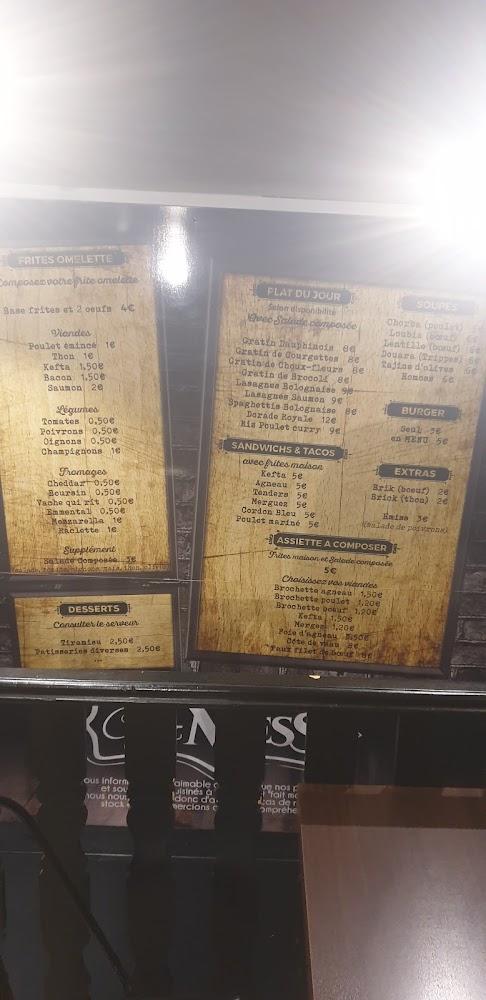 FRITES OMELETTE
Composez votre frite omelette
Base frites et 2 oeufs 4€
Viandes
Poulet émincé 1€
Thon 1€
Kefta 1,50€
Bacon 1,50€
Saumon 2€
Légumes
Tomates 0,50€
Poivrons 0,50€
Oignons 0,50€
Champignons 1€
Fromages
Cheddar 0,50€
Boursin 0,50€
Vache qui rit 0,50€
Emmental 0,50€
Mozzarella 1€
Raclette 1€
Supplément
Salade Composée 3€
DESSERTS
Consulter le serveur
Tiramisu 2,50€
Patisseries diverses 2,50€
...
PLAT DU JOUR
Selon disponibilité
Avec Salade composée
Gratin Dauphinois 8€
Gratin de Courgettes 8€
Gratin de Choux-fleurs 8€
Gratin de Brocoli 8€
Lasagnes Bolognaise 9€
Lasagnes Saumon 9€
Spaghettis Bolognaise 8€
Dorade Royale 12€
Ris Poulet curry 9€
SANDWICHS & TACOS
avec frites maison
Kefta 5€
Agneau 5€
Tenders 5€
Merguez 5€
Cordon Bleu 5€
Poulet mariné 5€
SOUPES
Chorba (poulet)
Loubia (bœuf) 6€
Lentille (bœuf) 6€
Douara (Tripes) 6€
Tajine d'olives 6€
Homoss 6€
BURGER
Seul 3€
en MENU 5€
EXTRAS
Brik (boeuf) 2€
Brick (thon) 2€
Hmiss 3€
(Salade de poivrons)
ASSIETTE A COMPOSER
Frites maison et Salade composée
5€
Choisissez vos viandes
Brochette agneau 1,50€
Brochette poulet 1,20€
Brochette boeuf 1,20€
Kefta 1,50€
Merguez 1,20€
Foie d'agneau
Côte de veau 8€
Faux filet de bœuf 8€